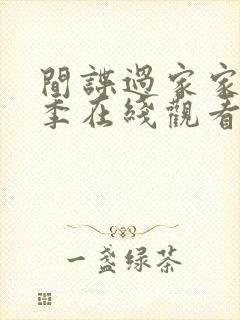 間諜過家家
季在綫觀看
一盞绿茶